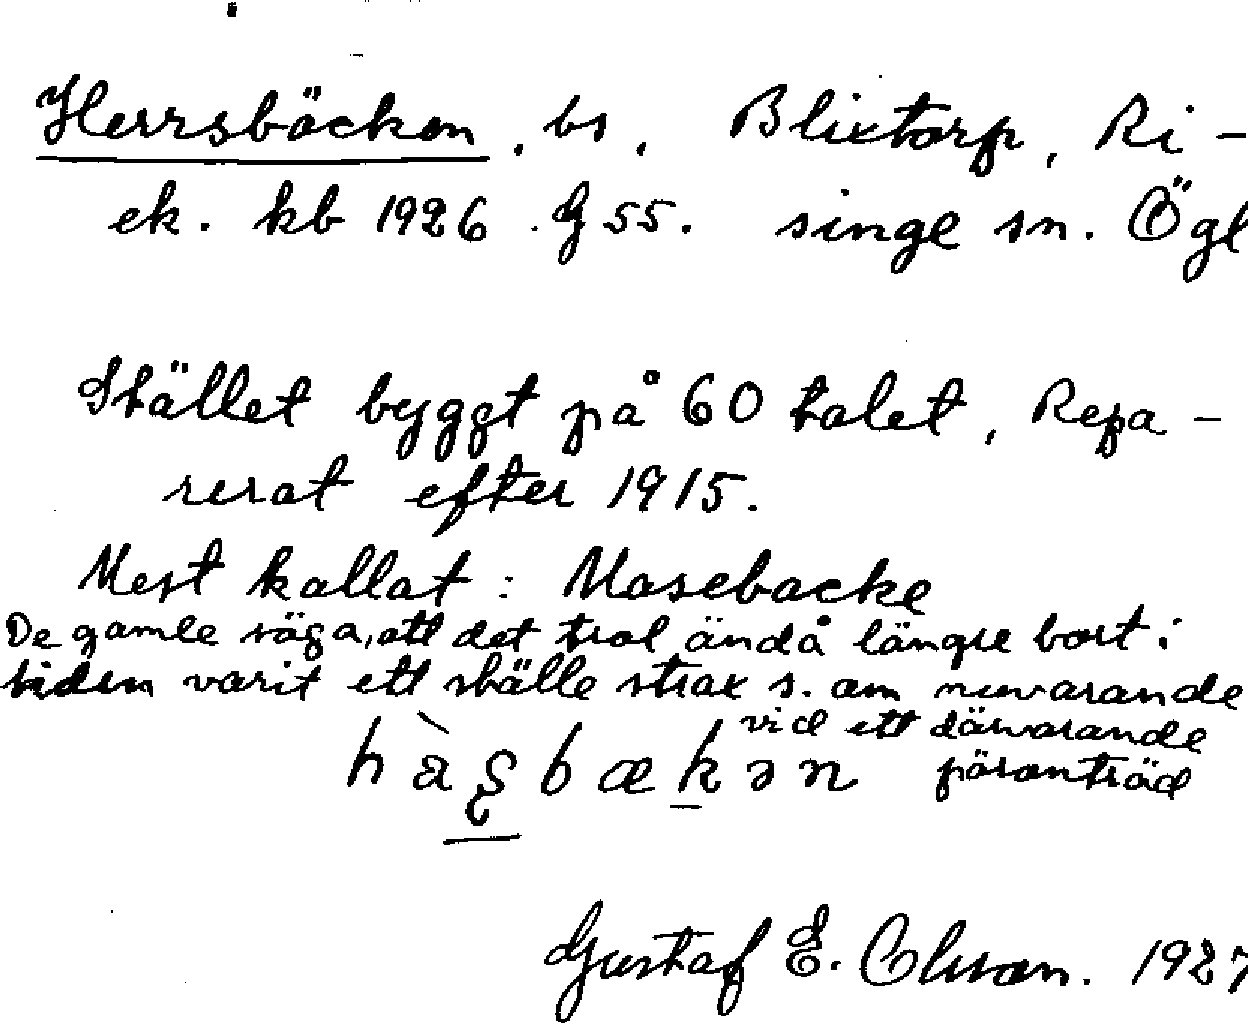 Herrsbäcken, bs. Blixtorp, Ri-
ek. kb 1926 G 55. singe sn. Ögl
Stället byggt på 60 talet, Repa-
rerat efter 1915.
Mest kallat: Mosebacke
De gamle säga, att det trol ändå längre bort i
tiden varit ett ställe strax s. om nuvarande
vid ett därvarande
päronträd
Gustaf E. Olsson. 1927